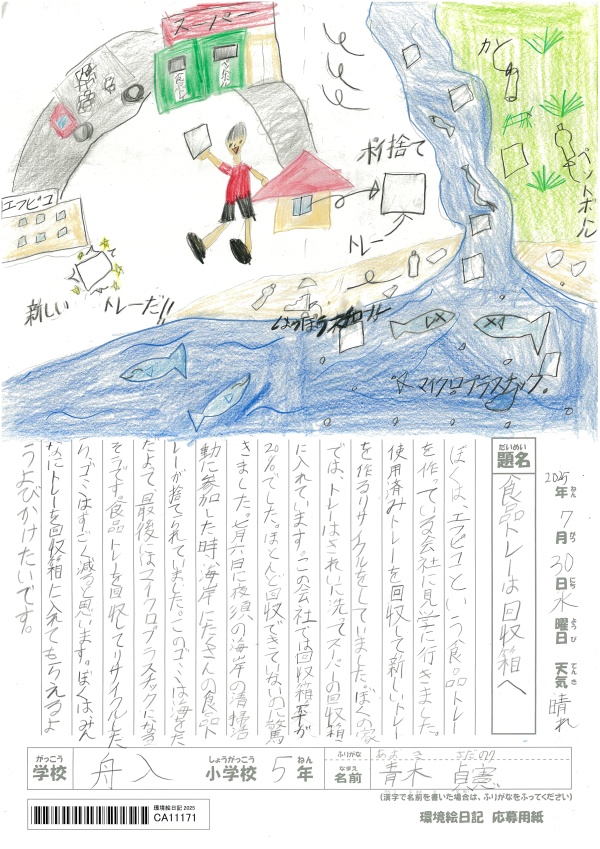 スーパー
食品トレー
ペットボトル
エフピコ
新しい
トレーだ!!
ポイ捨て
トレー
ペットボトル
はっぽうスチロール
マイクロプラスチック
2025年 7月 30日 水曜日 天気 晴れ
ねん がつ にち ようび てんき
だいめい
題名
食品トレーは回収箱へ
ぼくは、エフピコという食品トレー
を作っている会社に見学に行きました。
使用済みトレーを回収して新しいトレー
を作るリサイクルをしていました。ぼくの家
では、トレーはきれいに洗ってスーパーの回収箱
に入れています。この会社では回収率が
20%でした。ほとんど回収できてないので驚
きました。七月六日に夜須の海岸の清掃活
動に参加した時、海岸にたくさんの食品ト
レーが捨てられていました。このゴミは海をた
だよって、最後にはマイクロプラスチックになる
そうです。食品トレーを回収してリサイクルした
ら、ゴミはすごく減ると思います。ぼくはみん
なにトレーを回収箱に入れてもらえるよ
うよびかけたいです。
がっこう
学校 舟入 小学校 5年
しょうがっこう ねん
ふりがな あおき さだのり
なまえ
名前 青木 貞憲
(漢字で名前を書いた場合は、ふりがなをふってください)
環境絵日記 2025
CA11171
環境絵日記 応募用紙